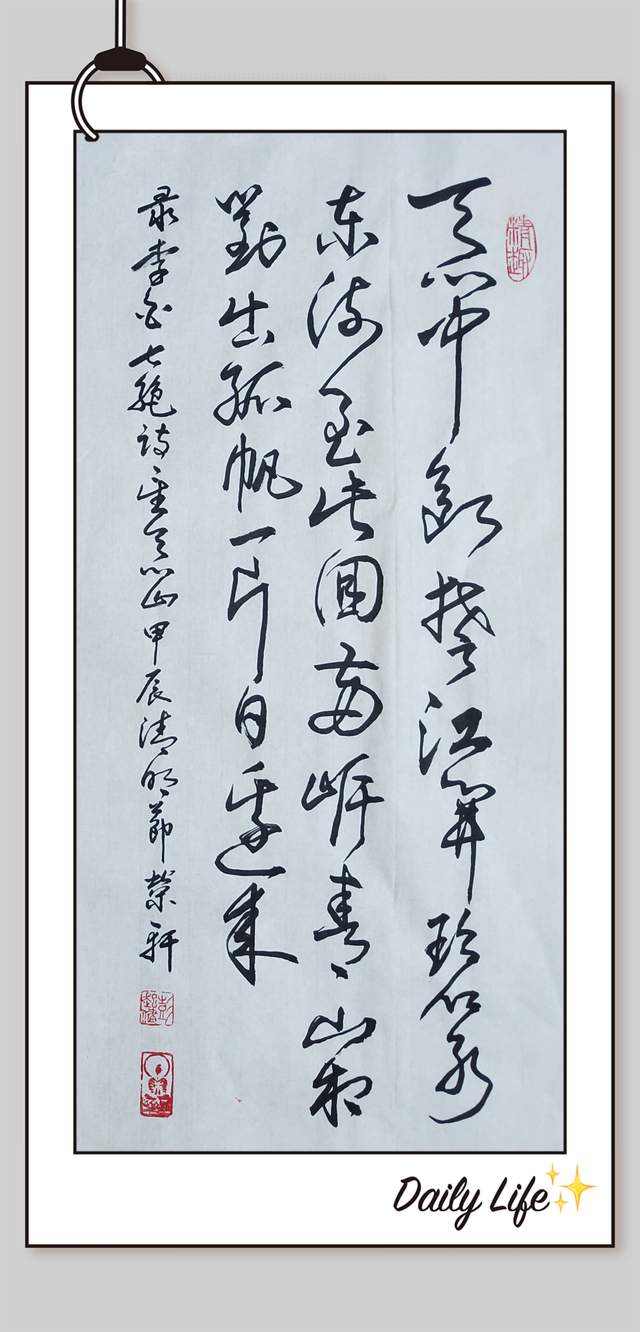 天门中断楚江開碧水
东流至此回兩岸青山相
對出孤帆一片日邊来
录李白七絶詩望天门山甲辰清明節榮軒
Daily Life